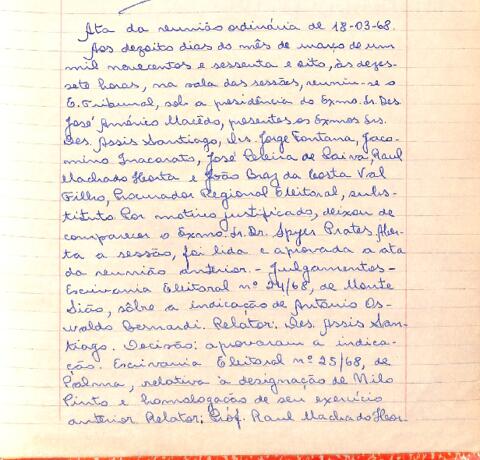 Ata da reunião ordinária de 18-03-68.
Aos dezoito dias do mês de março de um
mil novecentos e sessenta e oito, às dezes-
sete horas, na sala das sessões, reuniu-se o
E. Tribunal, sob a presidência do Exmo. Sr. Des.
José Américo Macêdo, presentes os Exmos Srs.
Des. Assis Santiago, Drs. Jorge Fontana, Jaco-
mino Inacarato, José Pereira de Paiva, Raul
Machado Horta e João Braz da Costa Val
Filho, Procurador Regional Eleitoral, subs-
tituto. Por motivo justificado, deixou de
comparecer o Exmo. Sr. Dr. Spyer Prates. Aber-
ta a sessão, foi lida e aprovada a ata
da reunião anterior. - Julgamentos -
Escrivania Eleitoral nº 24/68, de Monte
Sião, sôbre a indicação de Antônio Os-
waldo Bernardi. Relator: Des. Assis San-
tiago. Decisão: aprovaram a indica-
ção. Escrivania Eleitoral nº 25/68, de
Palma, relativa à designação de Nilo
Pinto e homologação de seu exercício
anterior. Relator: Prof. Raul Machado Hor-